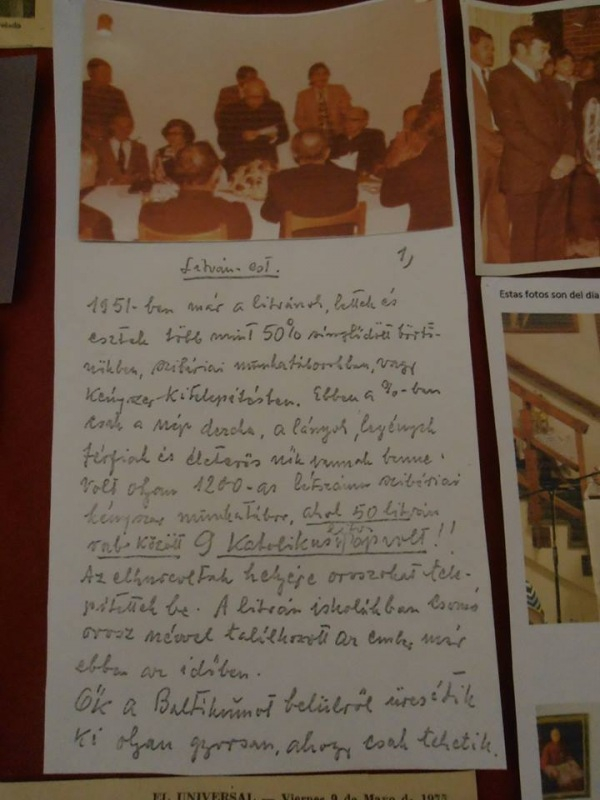 Litván-est.
1)
1951-ben már a litvánok, lettek és
esztek több mint 50% sínylődött börtö-
nökben, szibériai munkatáborokban, vagy
kényszer kitelepítésben. Ebben a %-ben
csak a nép dereka, a lányok, legények
férfiak és életerős nők vannak benne.
Volt olyan 1200-as létszámú szibériai
kényszer munkatábor, ahol 50 litván
rab között 9 Katolikus pap volt!!
Az elhurcoltak helyére oroszokat tele-
pítettek be. A litván iskolákban csomó
orosz névvel találkozott az ember már
ebben az időben.
Ők a Baltikumot belülről üresítik
ki olyan gyorsan, ahogy csak tehetik.
Estas fotos son del dia
EL UNIVERSAL — Viernes 9 de Mayo de 1975